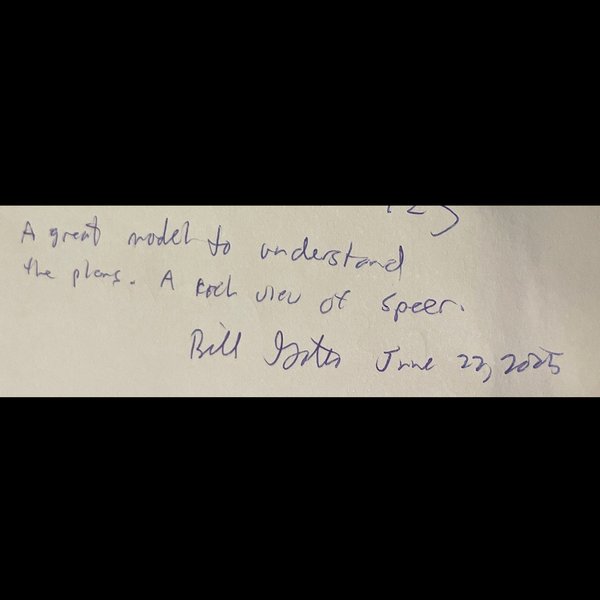 A great model to understand
the plans. A view of Speer.
Bill Gates June 22, 2025